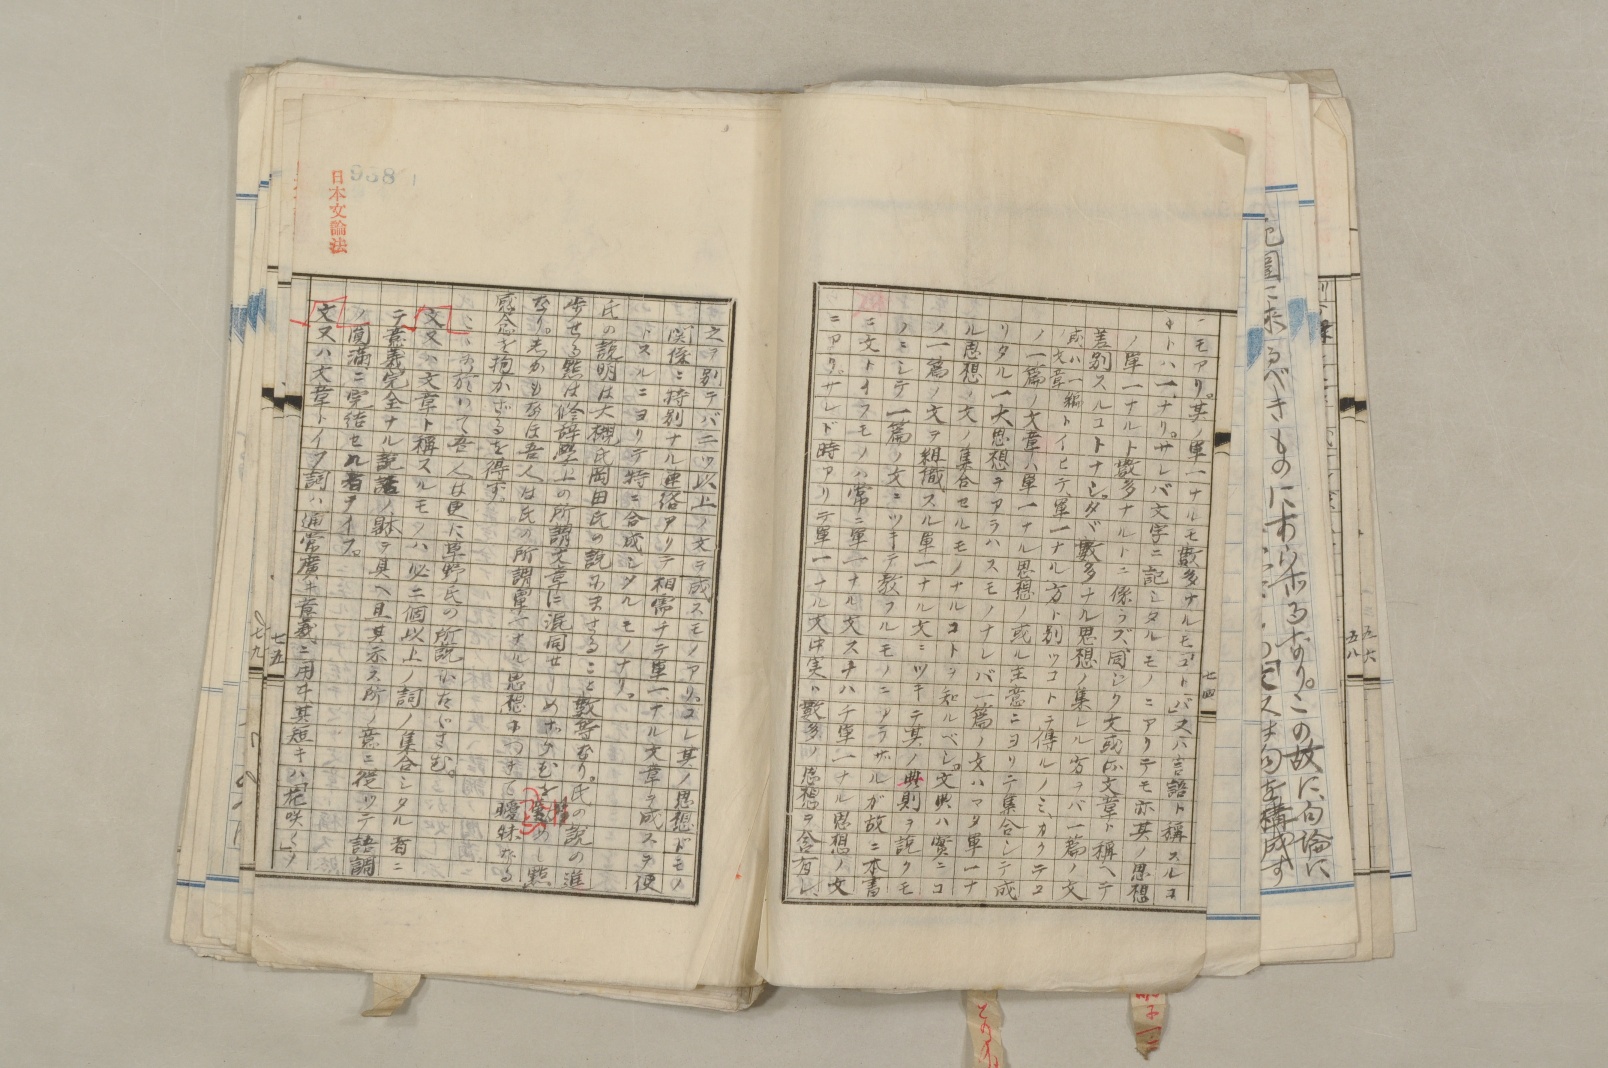 一モアリ。其ノ單一ナルモ數多ナルモ「コトバ」又ハ言語ト稱スルコ
トハ一ナリ。サレバ文字ニ記シタルモノニアリテモ亦其ノ思想
ノ單一ナルト數多ナルトニ係ラズ、同ジク文或ハ文章ト稱ヘテ
差別スルコトナシ。タヾ數多ナル思想ノ集レル方ヲバ一篇ノ文
或ハ一編ノ文章トイヒテ、單一ナル方ト別ツコトヲ得ルノミ。カクテコ
ノ一篇ノ文章ハ單一ナル思想ノ或ル主意ニヨリテ集合シテ成
リタル一大思想ヲアラハスモノナレバ一篇ノ文ハマタ單一ナ
ル思想ノ文ノ集合セルモノナルコトヲ知ルベシ。文典ハ實ニコ
ノ一篇ノ文ヲ組織スル單一ナル文ニツキテ其ノ典則ヲ説クモ
ノニシテ一篇ノ文ニツキテ教フルモノニアラザルガ故ニ本書
ニ文トイフモノハ常ニ單一ナル文スナハチ單一ナル思想ノ文
ニアリ。サレド時アリテ單一ナル文中実ハ數多ノ思想ヲ含有シ、
七四
日本文論法
之ヲ別テバ二ツ以上ノ文ヲ成スモノアリ。コレ其ノ思想ドモノ
関係ニ特別ナル連絡アリテ相需チテ單一ナル文章ヲ成スヲ便
トスルニヨリテ特ニ合成シタルモノナリ。
氏の説明は大槻氏岡田氏の説にまさること數等なり。氏の説の進
歩せる點は修辞學上の所謂文章に混同せしめざりし點
なり。志かもなほ吾人は氏の所謂單一ナル思想につきて曖昧なる
感念を抱かざるを得ず。
こゝに於いて吾人は更に草野氏の所説をたゞさむ。
文又ハ文章ト稱スルモノハ必ニ個以上ノ詞ノ集合シタル者ニ
テ意義完全ナル説話ノ躰ヲ具ヘ且其示ス所ノ意ニ從ツテ語調
ノ圓滿ニ完結セル者ヲイフ。
文又ハ文章トイフ詞ハ通常廣キ意義ニ用ヰ、其短キハ「花咲く」ノ
七五
七九
五八
五六
範圍に来るべきものにあらざるなり。この故に、句論に